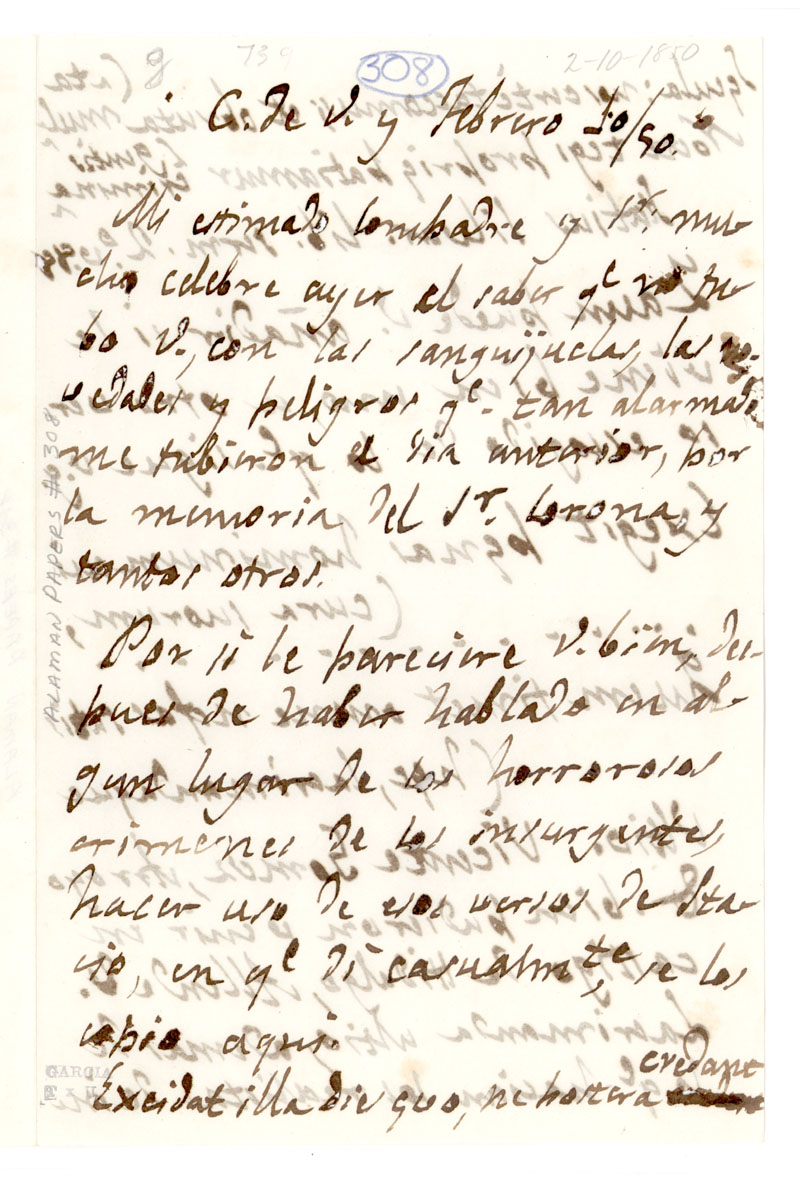 g 739 308 2-10-1850
C. de V. y Febrero 10/50.
Mi estimado Compadre y Sr. mu-
cho celebre ayer el saber qe no tu-
bo V., con las sanguijuelas, las no-
vedades y peligros qe. tan alarmado
me tubieron el dia anterior, por
la memoria del Sr. Corona, y
tantos otros.
Por si le pareciere V. bien, des-
pues de haber hablado en al-
gun lugar de los horrorosos
crimenes de los insurgentes,
hacer uso de esos versos de Sta-
cio, en qe di casualmte, se los
copio aqui.
credant
Excidat illa dies aevo, ne postera
ALAMAN PAPERS # 308
GARCIA